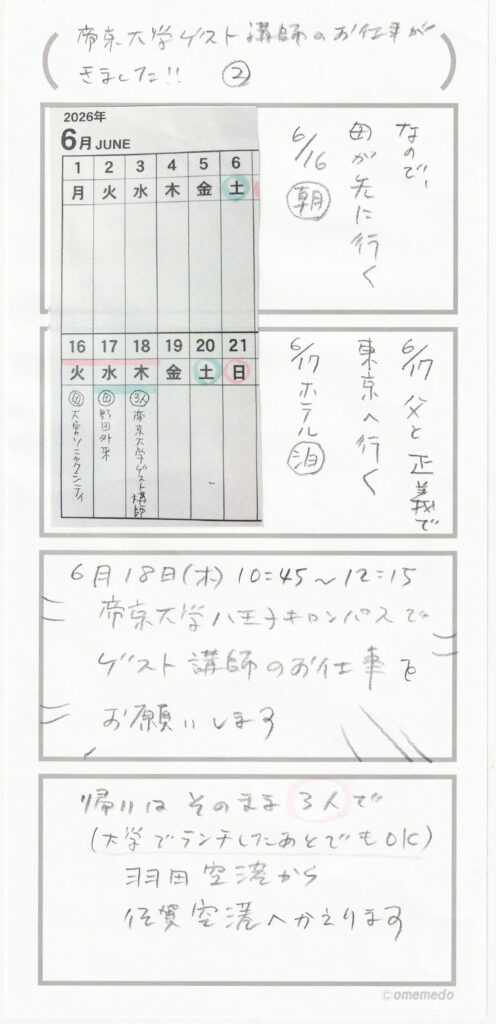 帝京大学ゲスト講師のお仕事が
きました!! ②
なので、
母が先に行く
6/16 朝
2026年
6月 JUNE
1 2 3 4 5 6
月 火 水 木 金 土
6/17 父と正義で
東京へ行く
6/17 ホテル泊
16 17 18 19 20 21
火 水 木 金 土 日
母 大宮ソニックシティ
母 野田外来
3人 帝京大学ゲスト講師
6月18日(木) 10:45~12:15
帝京大学八王子キャンパスで
ゲスト講師のお仕事を
お願いします
帰りは そのまま 3人で
(大学でランチしたあとでもOK)
羽田空港から
佐賀空港へかえります
©omemedo